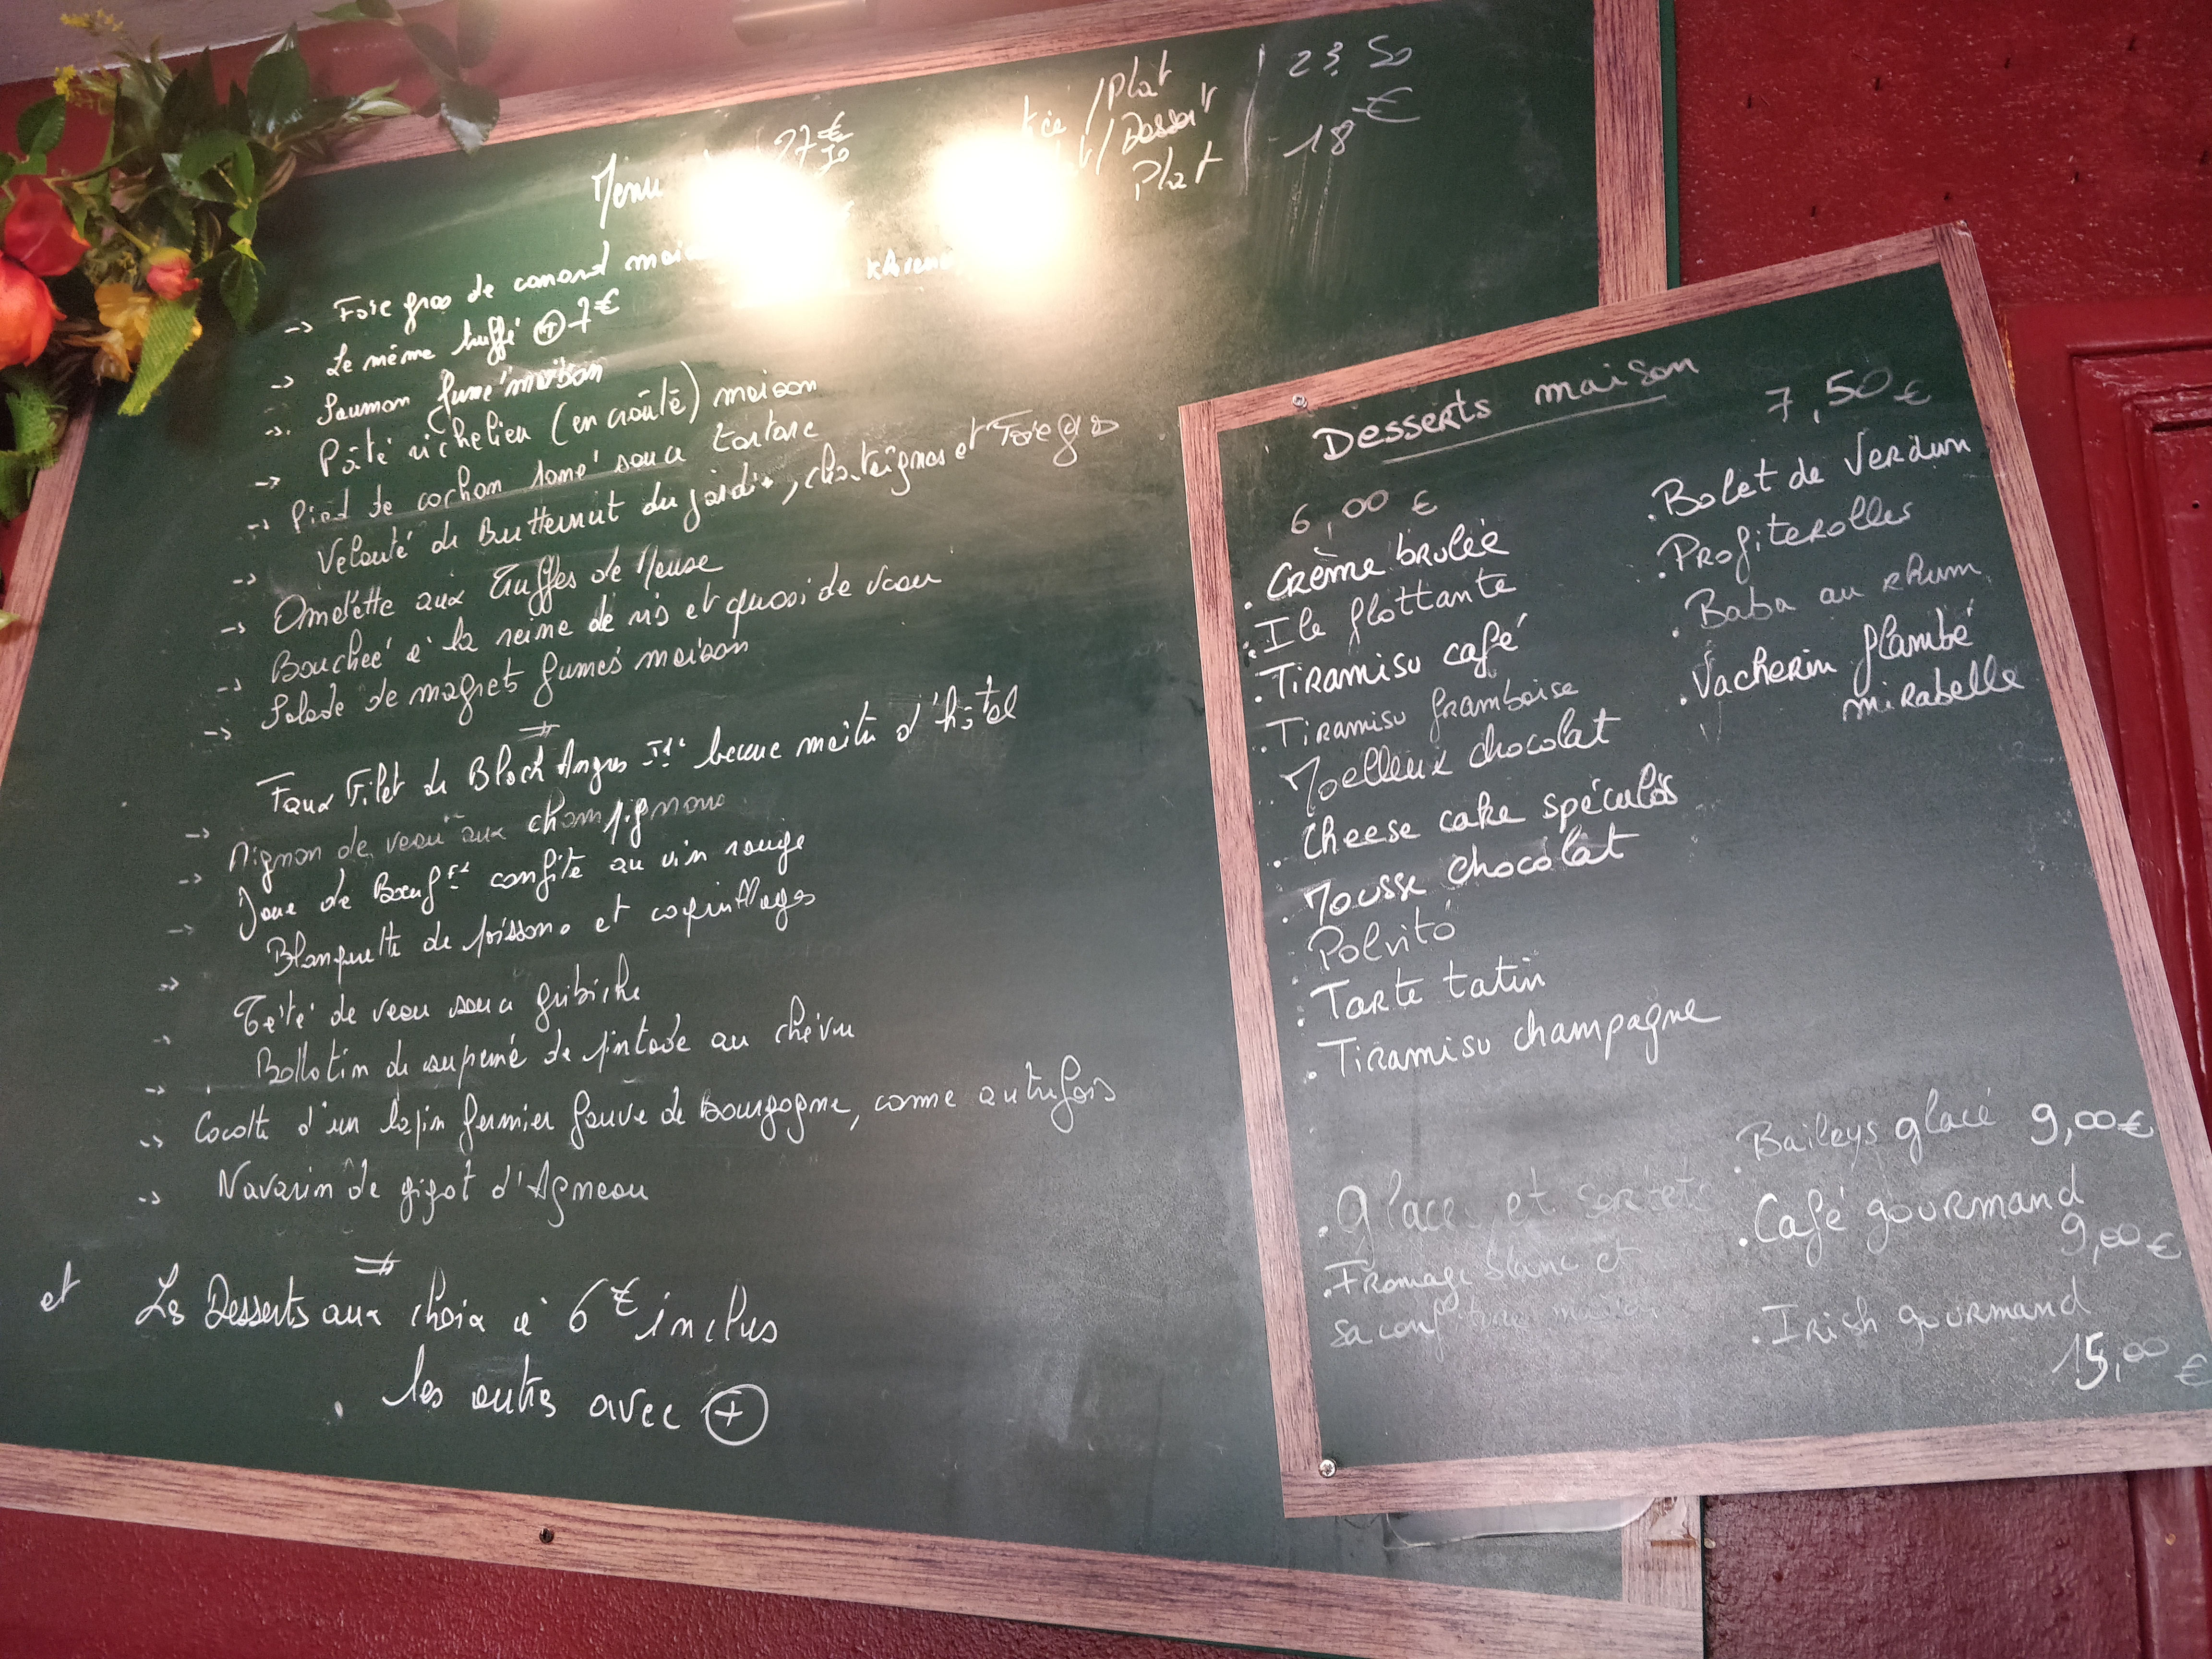 Menu 27€50
/Plat | 23,50
/Dessert
Plat | 18€
-> Foie gras de canard
-> Le même truffé + 7€
-> Saumon fumé maison
-> Pâté richelieu (en croûte) maison
-> Pied de cochon pané sauce tartare
-> Velouté de Butternut du jardin, chataignes et Foie gras
-> Omelette aux Truffes de Meuse
-> Bouchée à la reine de ris et quasi de veau
-> Salade de magrets fumés maison
-> Faux Filet de Black Angus beurre maître d'hôtel
-> Mignon de veau aux champignons
-> Joue de Bœuf confite au vin rouge
-> Blanquette de poissons et coquillages
-> Tête de veau sauce gribiche
-> Ballotin de suprême de pintade au chèvre
-> Cocotte d'un lapin fermier fauve de Bourgogne, comme autrefois
-> Navarin de gigot d'Agneau
et Les Desserts aux choix à 6€ inclus
les autres avec +
Desserts maison
6,00 €
. Crème brulée
. Ile flottante
. Tiramisu café
. Tiramisu framboise
. Moelleux chocolat
. Cheese cake spéculos
. Mousse chocolat
. Polvito
. Tarte tatin
. Tiramisu champagne
. Glaces et sorbets
. Fromage blanc et
sa confiture maison
7,50 €
. Bolet de Verdun
. Profiterolles
. Baba au rhum
. Vacherin flambé
mirabelle
. Baileys glacé 9,00 €
. Café gourmand
9,00 €
. Irish gourmand
15,00 €